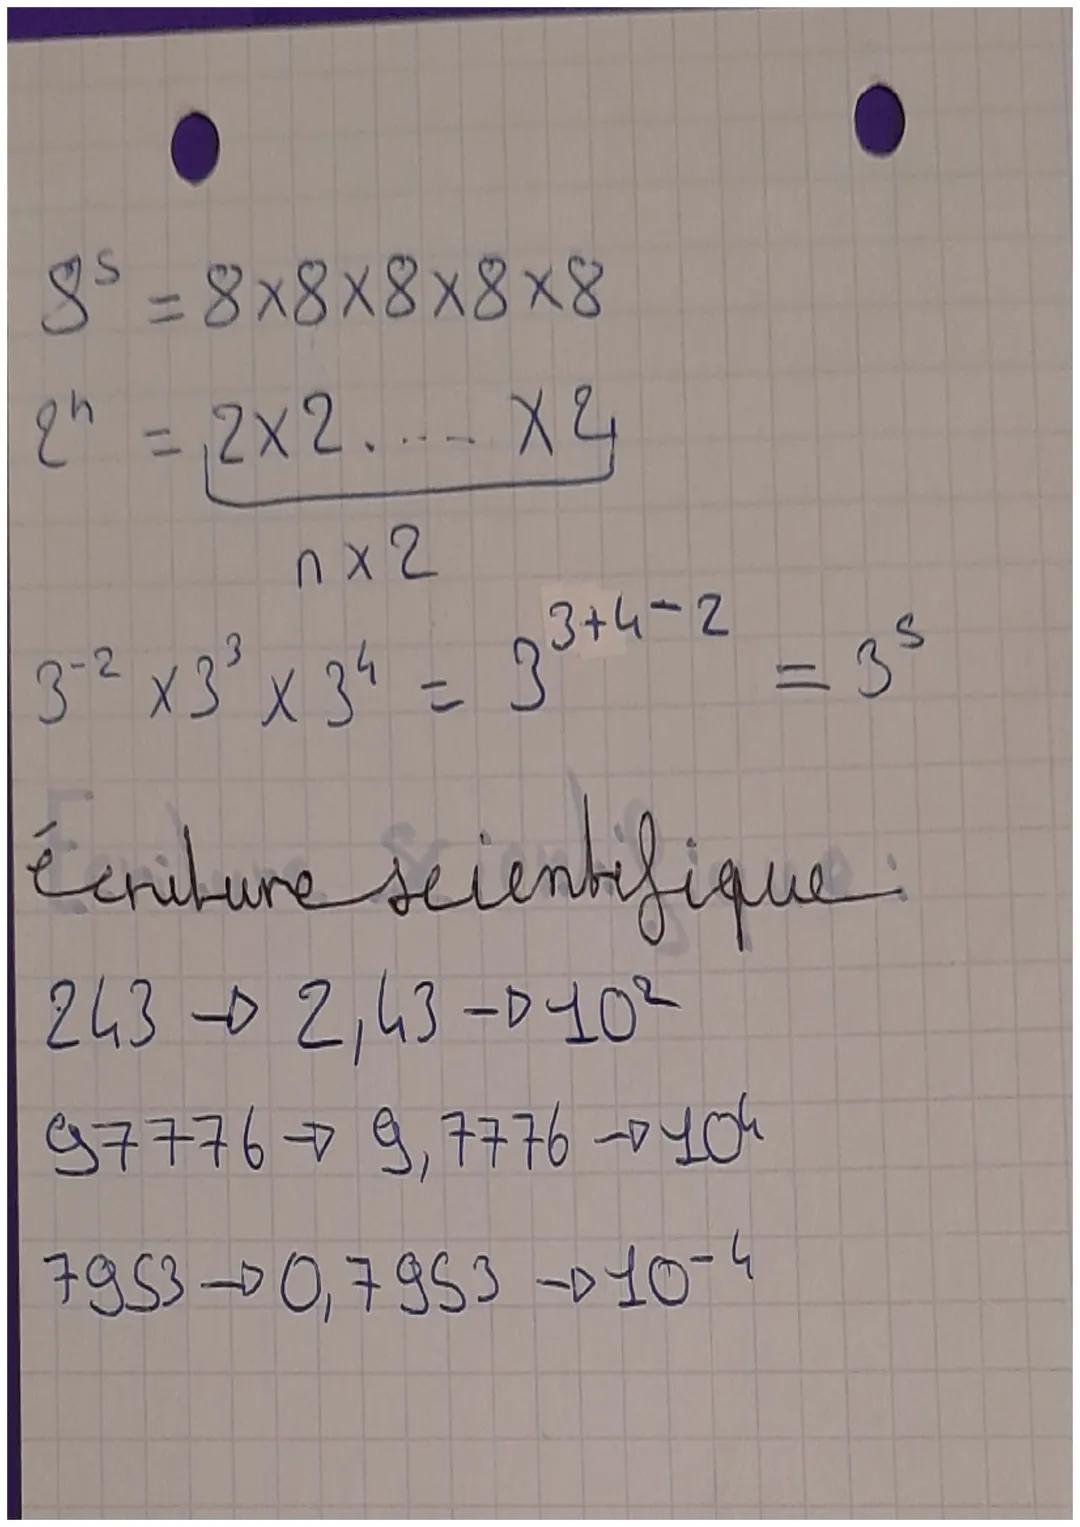 8⁵ = 8×8×8×8×8
2ⁿ = 2×2.....×2
n×2
3⁻² × 3³ × 3⁴ = 3³⁺⁴⁻² = 3⁵
Écriture scientifique :
243 → 2,43 → 10²
97776 → 9,7776 → 10⁴
7953 → 0,7953 → 10⁻⁴